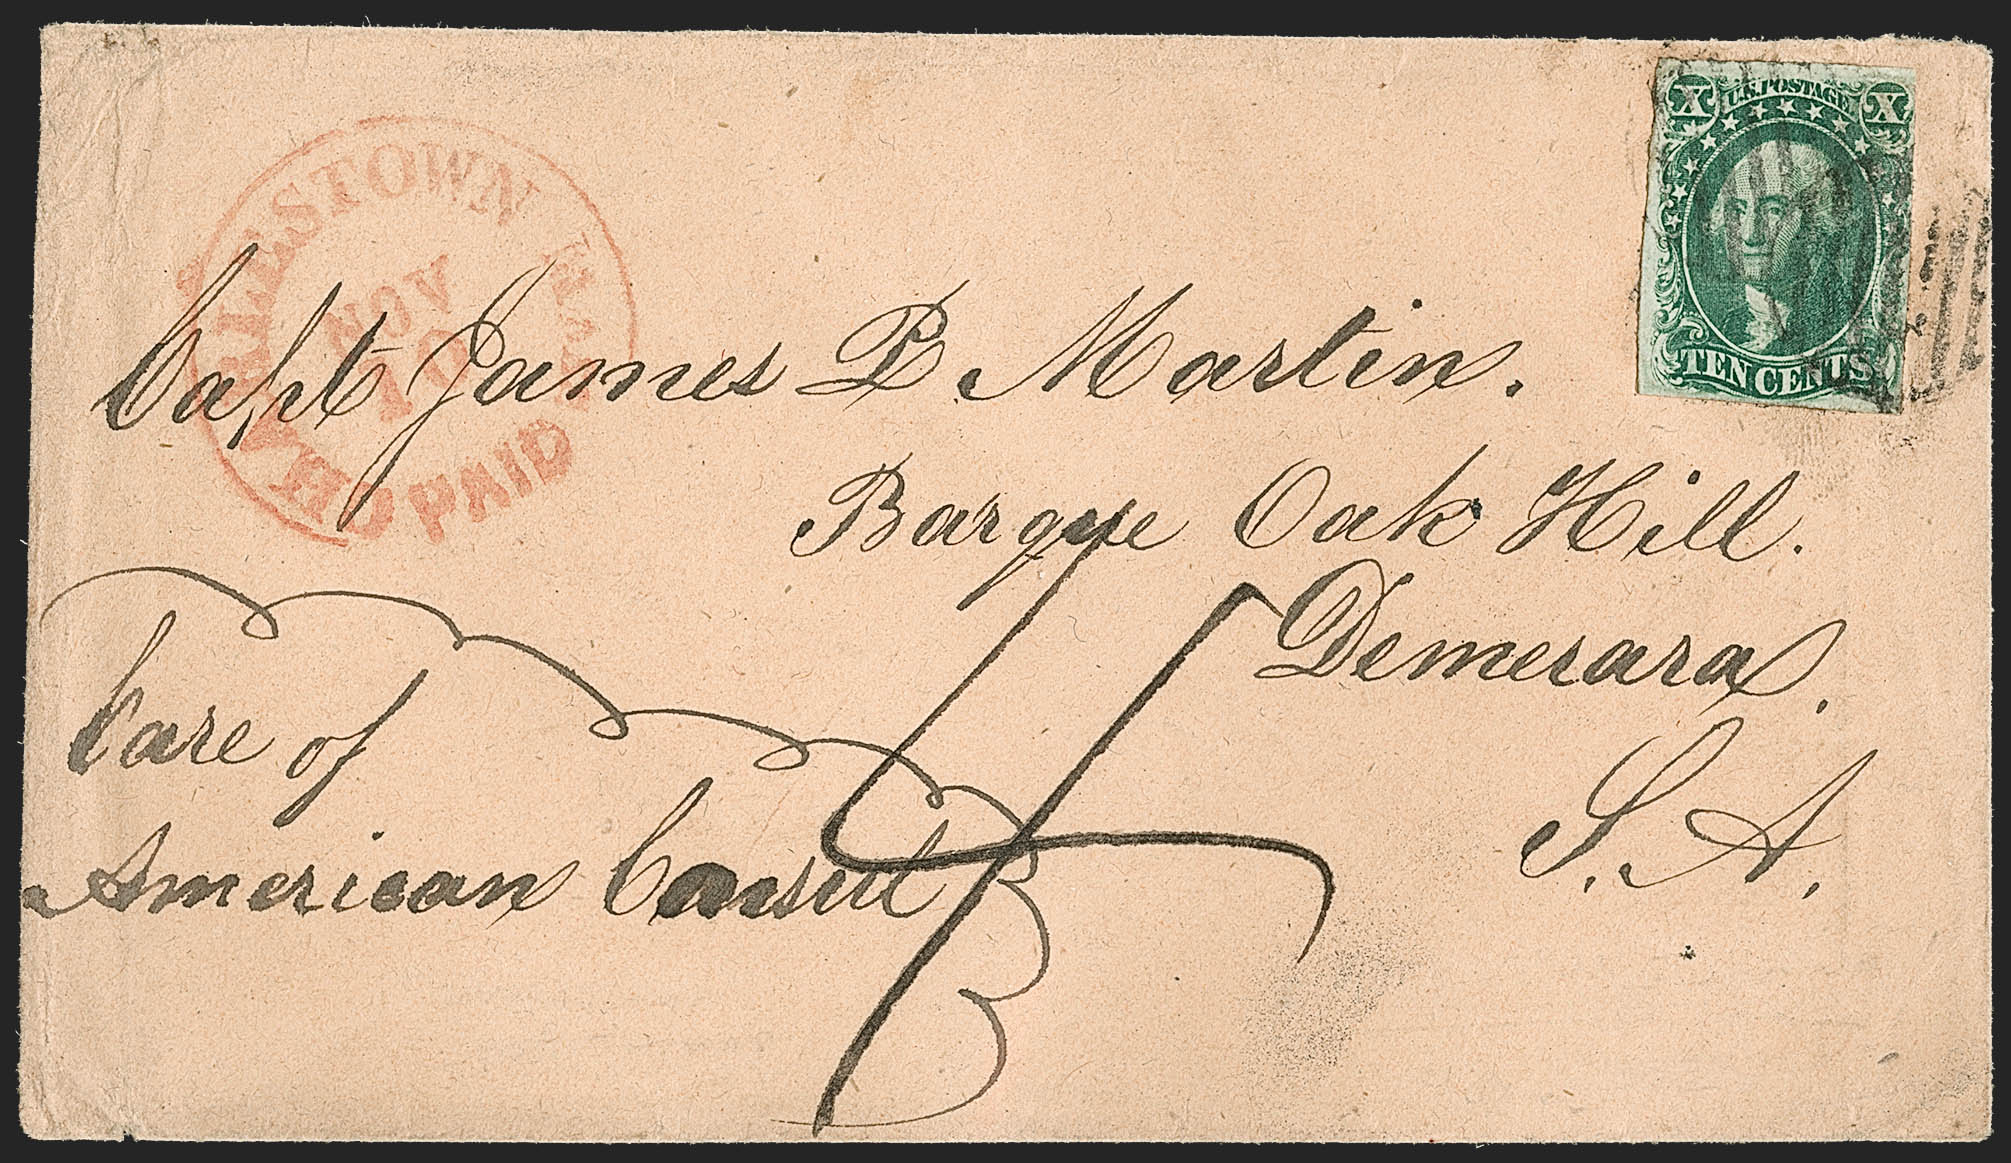 X U.S. POSTAGE X
TEN CENTS
CHARLESTOWN MASS.
NOV
10
PAID
Capt James P. Martin.
Barque Oak Hill.
Demerara.
S. A.
Care of
American Consul
4